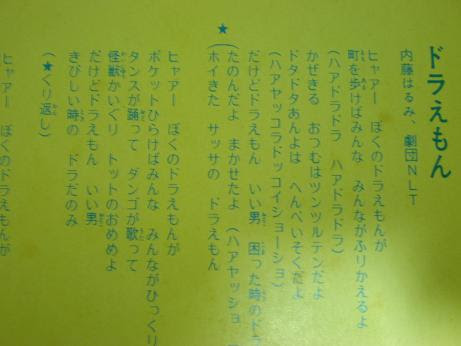 ドラえもん
内藤はるみ、劇団NLT
ヒャアー ぼくのドラえもんが
町を歩けばみんな みんながふりかえるよ
(ハアドラドラ ハアドラドラ)
かぜきる おつむはツンツルテンだよ
ドタドタあんよは へんぺいそくだよ
(ハアヤッコラドッコイショーショ)
だけどドラえもん いい男 困った時のドラ
★(たのんだよ まかせたよ (ハアヤッショ
ホイきた サッサの ドラえもん
ヒャアー ぼくのドラえもんが
ポケットひらけばみんな みんながひっくり
タンスが踊って ダンゴが歌って
怪獣かいぐり トットのおめめよ
だけどドラえもん いい男
きびしい時の ドラだのみ
(★くり返し)
ヒャアー ぼくのドラえもんが